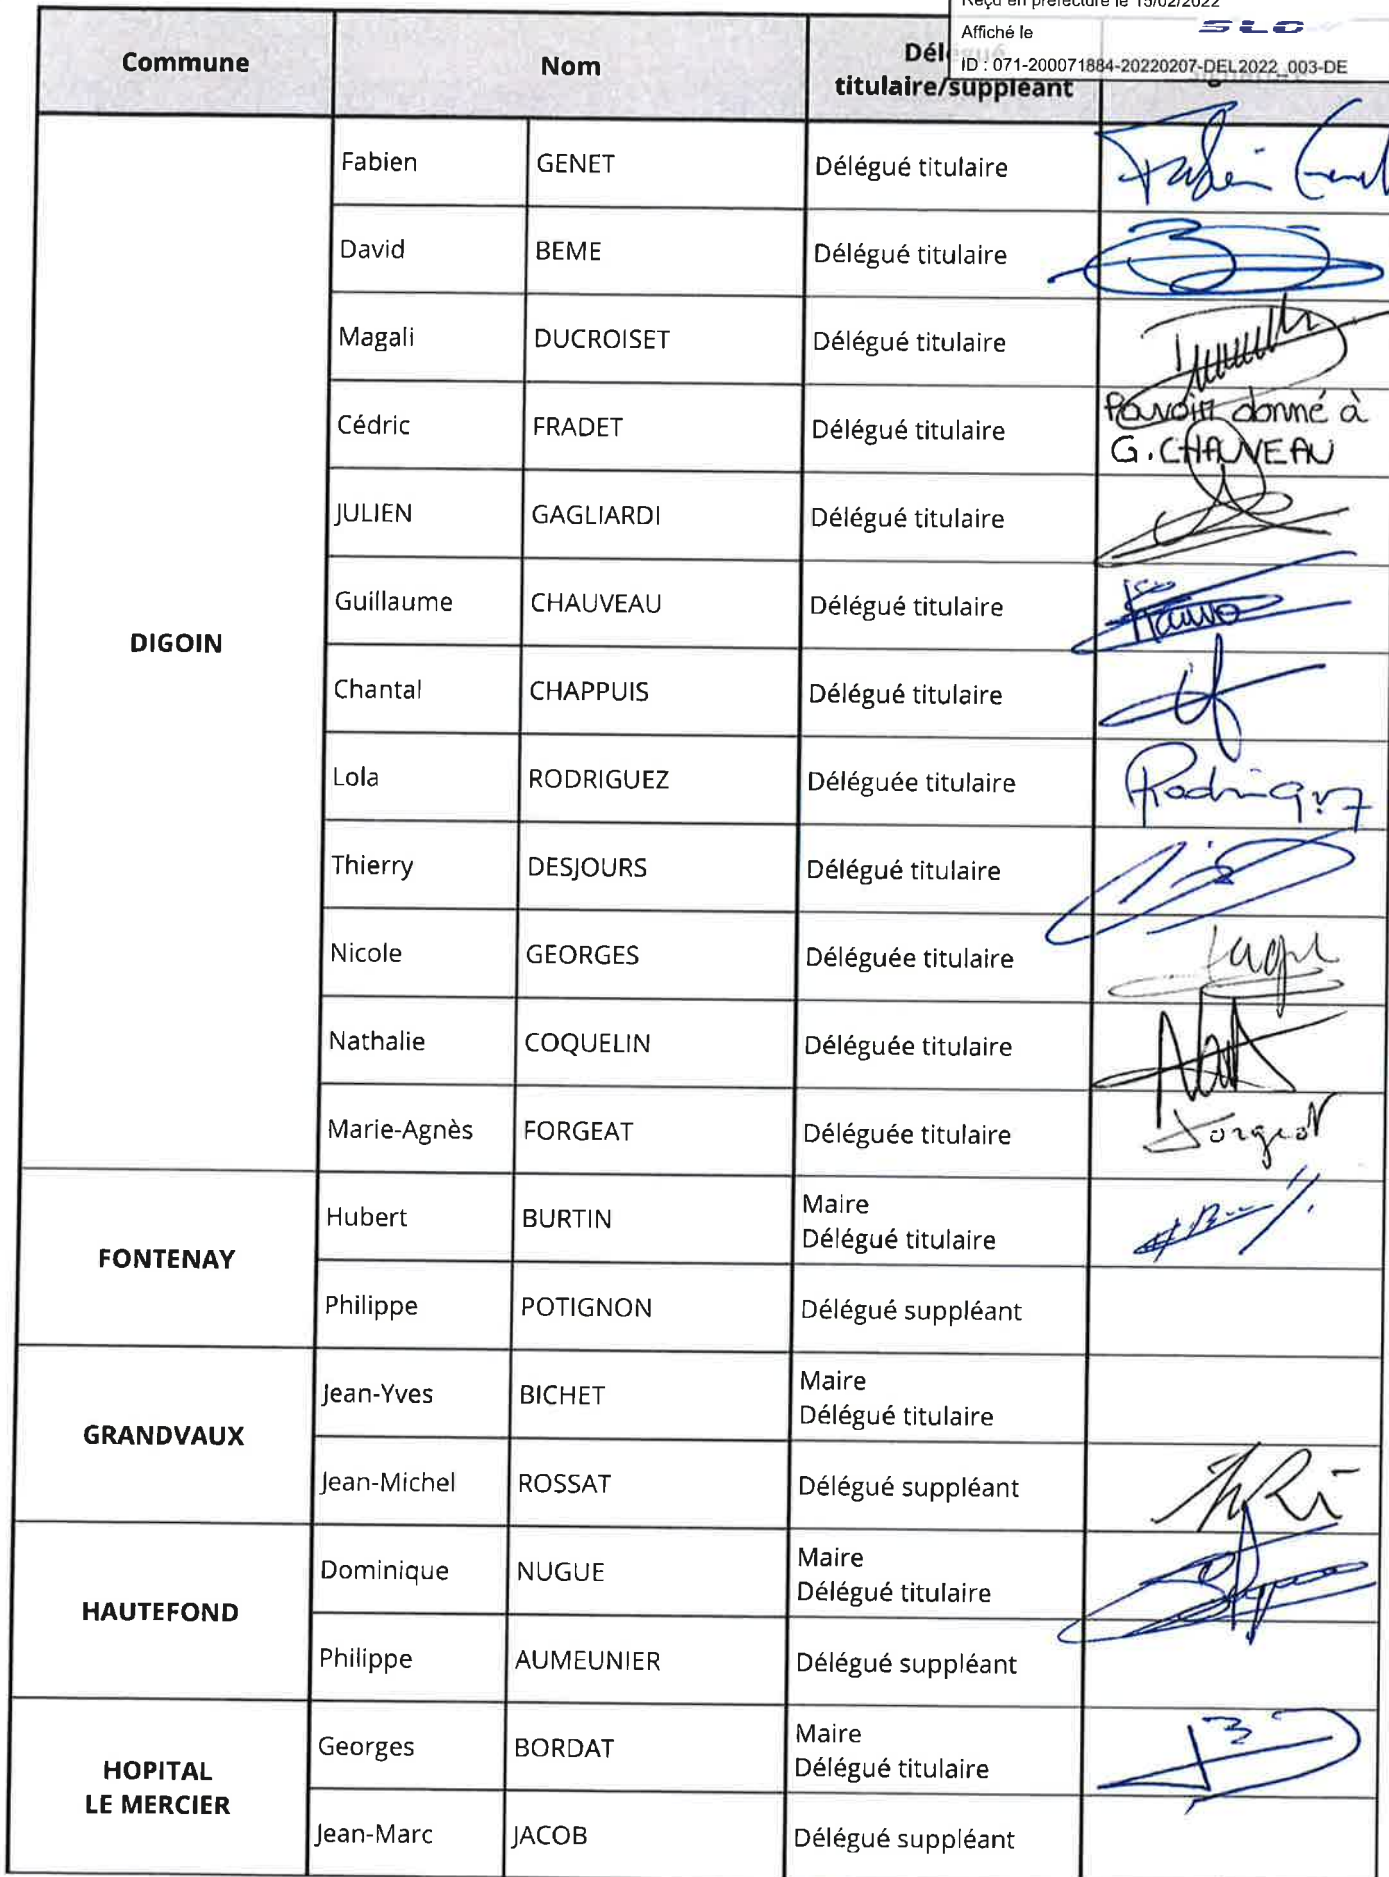 Reçu en préfecture le 15/02/2022
Affiché le SLO
ID : 071-200071884-20220207-DEL2022_003-DE
Commune Nom Délégué
titulaire/suppléant
DIGOIN
Fabien GENET Délégué titulaire Fabien Genet
David BEME Délégué titulaire
Magali DUCROISET Délégué titulaire
Cédric FRADET Délégué titulaire Pouvoir donné à
G. CHAUVEAU
JULIEN GAGLIARDI Délégué titulaire
Guillaume CHAUVEAU Délégué titulaire
Chantal CHAPPUIS Délégué titulaire
Lola RODRIGUEZ Déléguée titulaire Rodriguez
Thierry DESJOURS Délégué titulaire
Nicole GEORGES Déléguée titulaire
Nathalie COQUELIN Déléguée titulaire
Marie-Agnès FORGEAT Déléguée titulaire Forgeat
FONTENAY
Hubert BURTIN Maire
Délégué titulaire
Philippe POTIGNON Délégué suppléant
GRANDVAUX
Jean-Yves BICHET Maire
Délégué titulaire
Jean-Michel ROSSAT Délégué suppléant
HAUTEFOND
Dominique NUGUE Maire
Délégué titulaire
Philippe AUMEUNIER Délégué suppléant
HOPITAL
LE MERCIER
Georges BORDAT Maire
Délégué titulaire
Jean-Marc JACOB Délégué suppléant